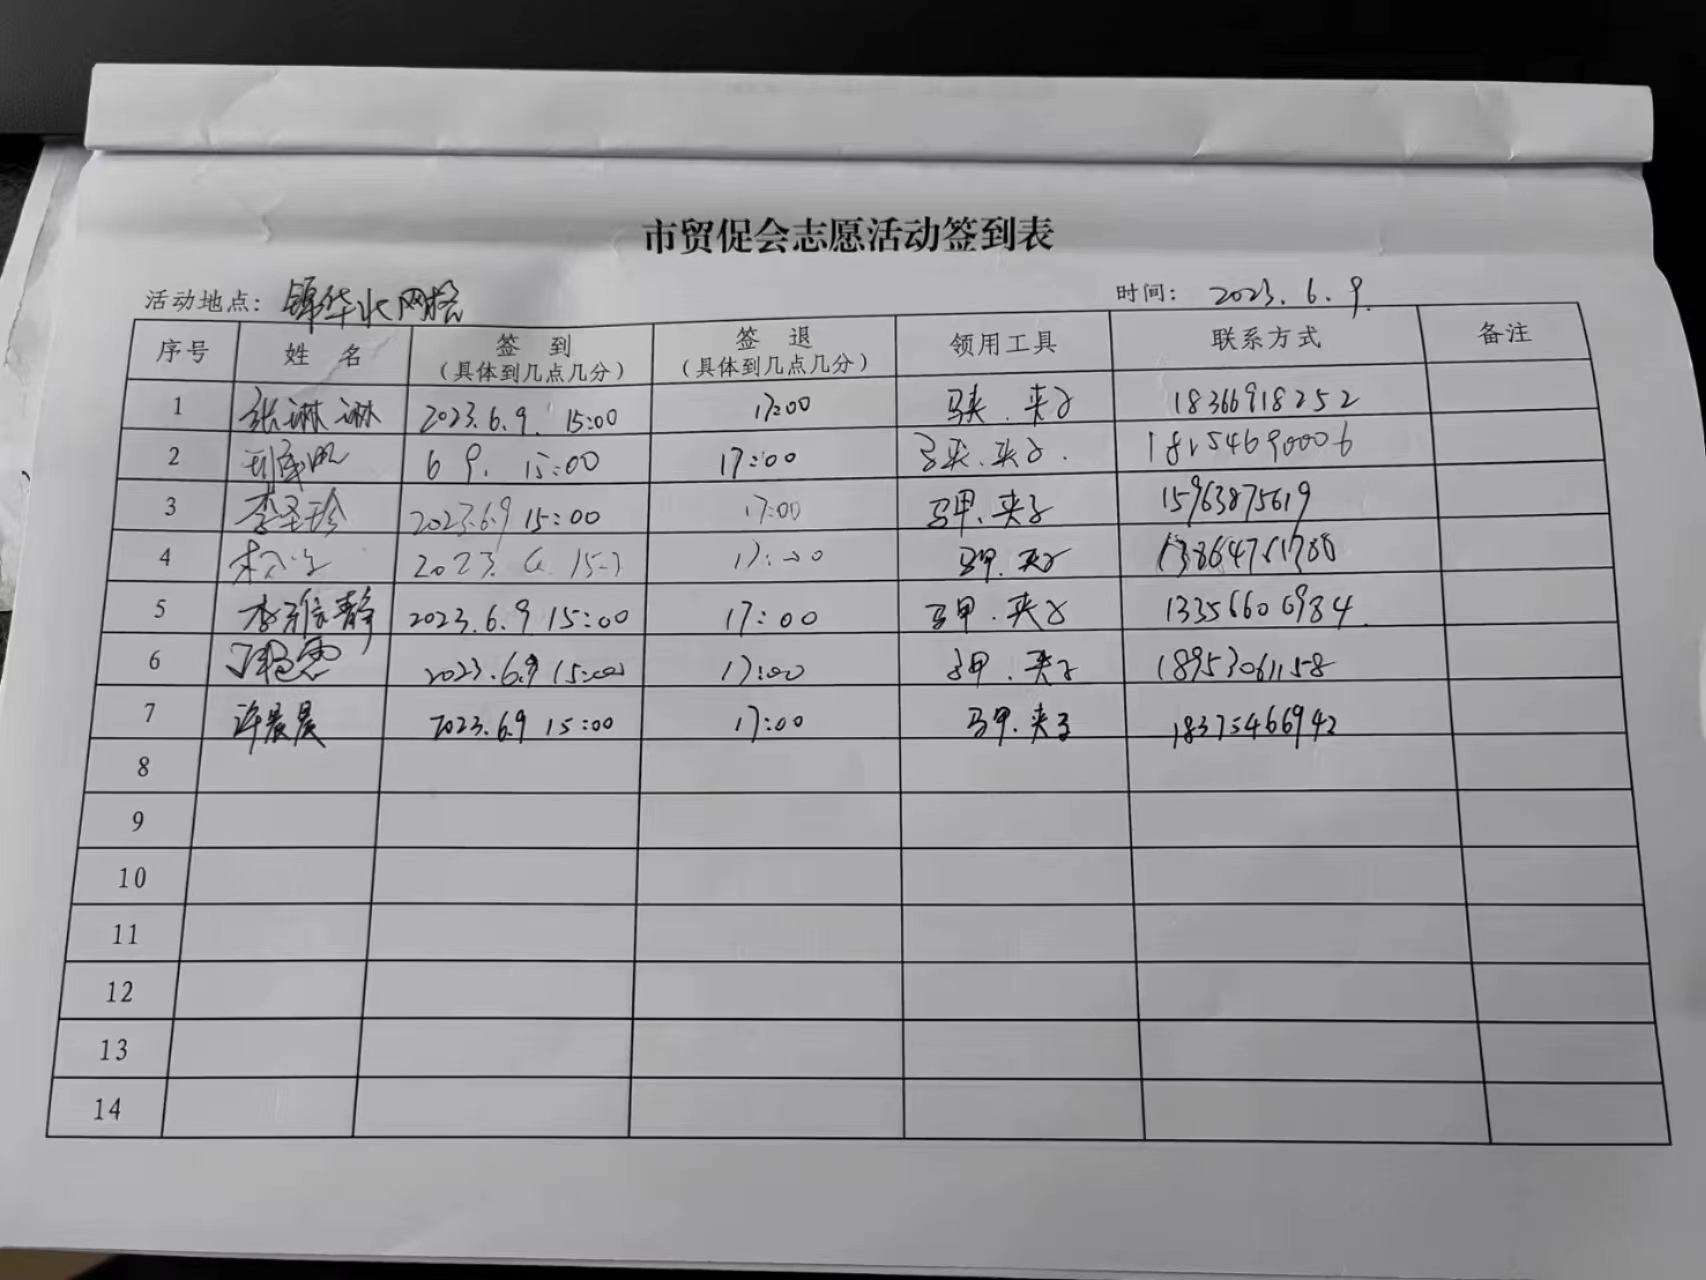 市贸促会志愿活动签到表
活动地点: 锦华北网格 时间: 2023.6.9.
序号 姓名 签到 (具体到几点几分) 签退 (具体到几点几分) 领用工具 联系方式 备注
1 张琳琳 2023.6.9. 15:00 17:00 马夹.夹子 18366918252
2 6 9. 15:00 17:00 马夹.夹子. 18154690006
3 李圣珍 2023.6.9 15:00 17:00 马甲、夹子 15963875619
4 2023. 17:00 马甲.夹子 13864751788
5 李雅静 2023.6.9 15:00 17:00 马甲.夹子 13356606984
6 2023.6.9 15:00 17:00 马甲.夹子 18953061158
7 许晨晨 2023.6.9 15:00 17:00 马甲.夹子 18375466942
8
9
10
11
12
13
14